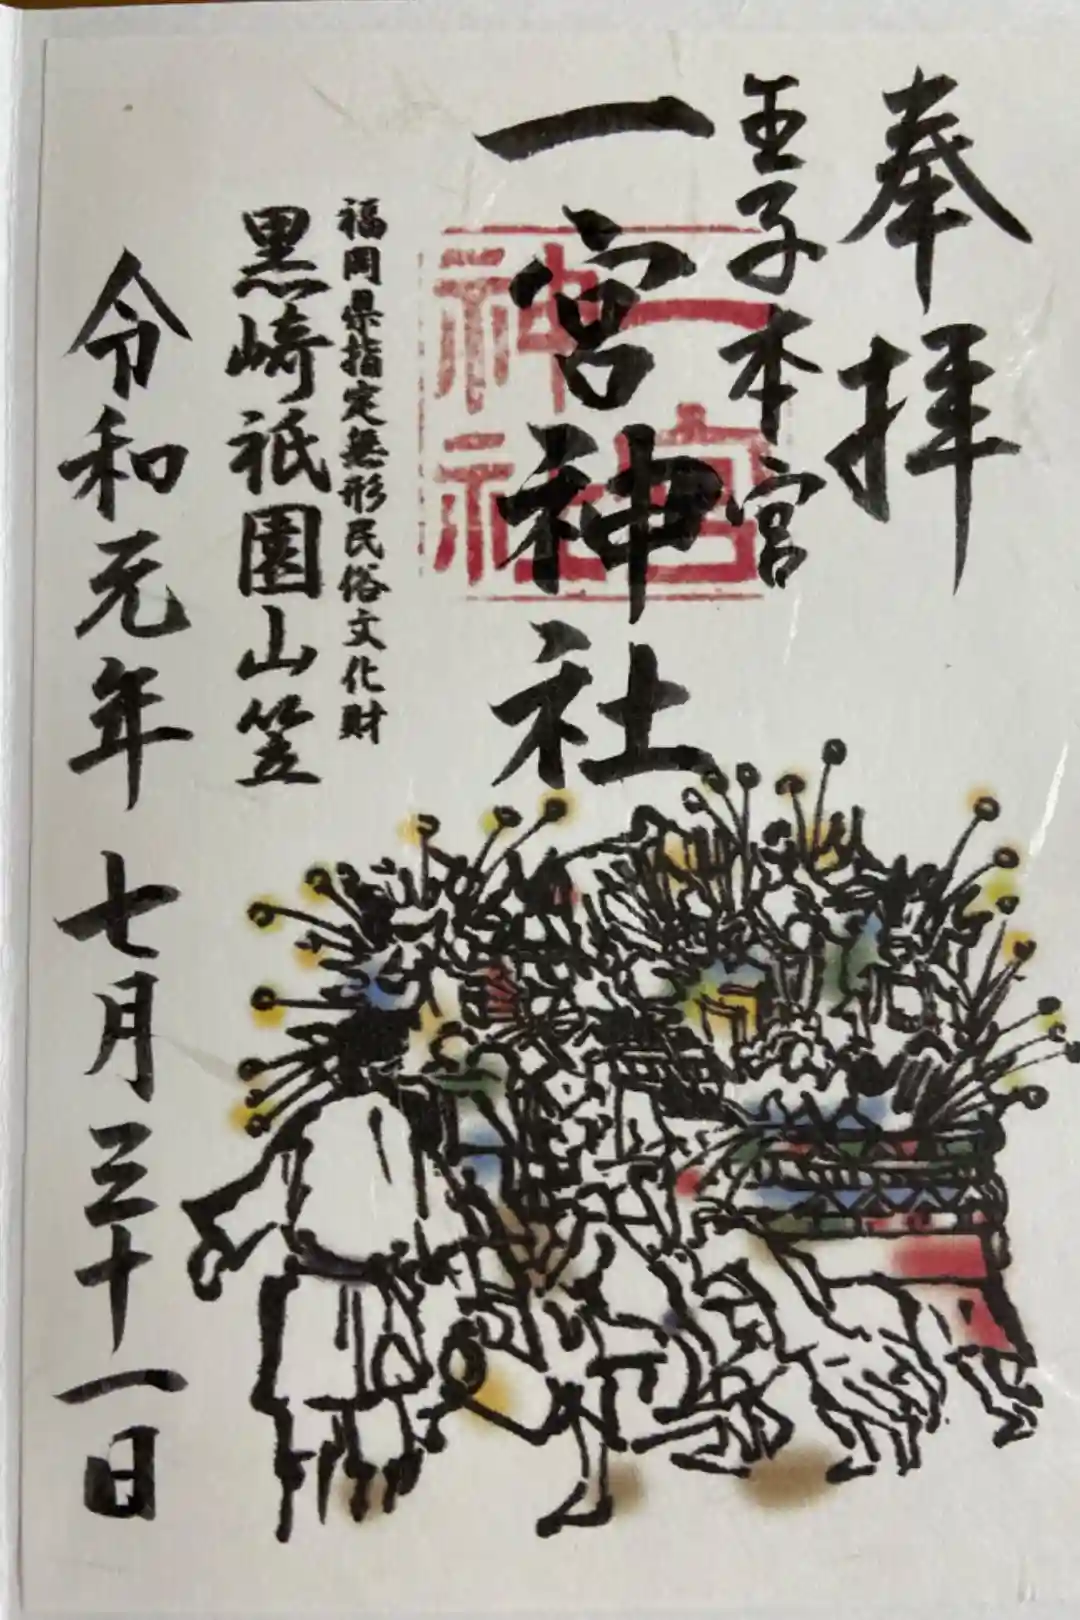 奉拝
王子本宮
一宮神社
一宮
神社
福岡県指定無形民俗文化財
黒崎祇園山笠
令和元年七月三十一日